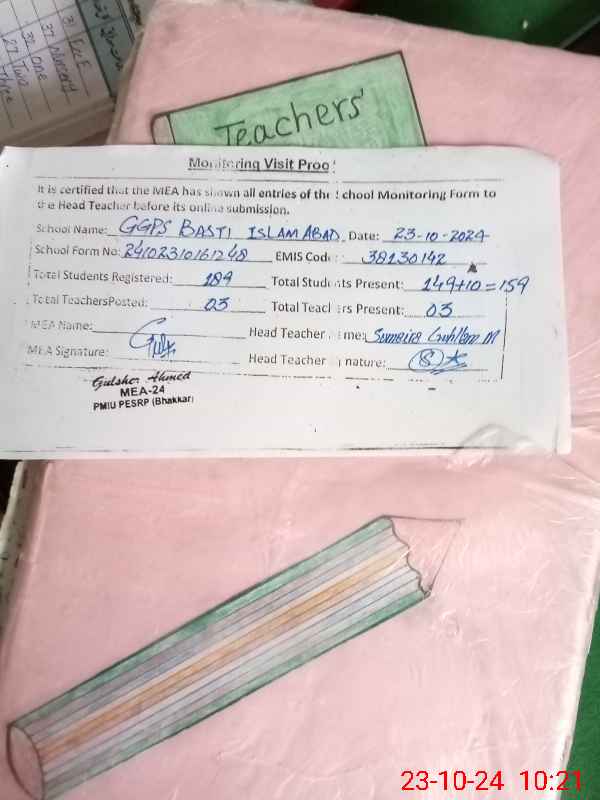 31 ECE
37 Nursery
32 one
27 Two
Three
Teachers'
Monitoring Visit Proo
It is certified that the MEA has shown all entries of the School Monitoring Form to
the Head Teacher before its online submission.
School Name: GGPS BASTI ISLAMABAD Date: 23-10-2024
School Form No: 24102310161248 EMIS Code: 38130142
Total Students Registered: 189 Total Students Present: 149+10=159
Total TeachersPosted: 03 Total Teachers Present: 03
MEA Name: Head Teacher me: Sumaira
MEA Signature: Head Teacher nature:
Gulsher Ahmed
MEA-24
PMIU PESRP (Bhakkar)
23-10-24 10:21